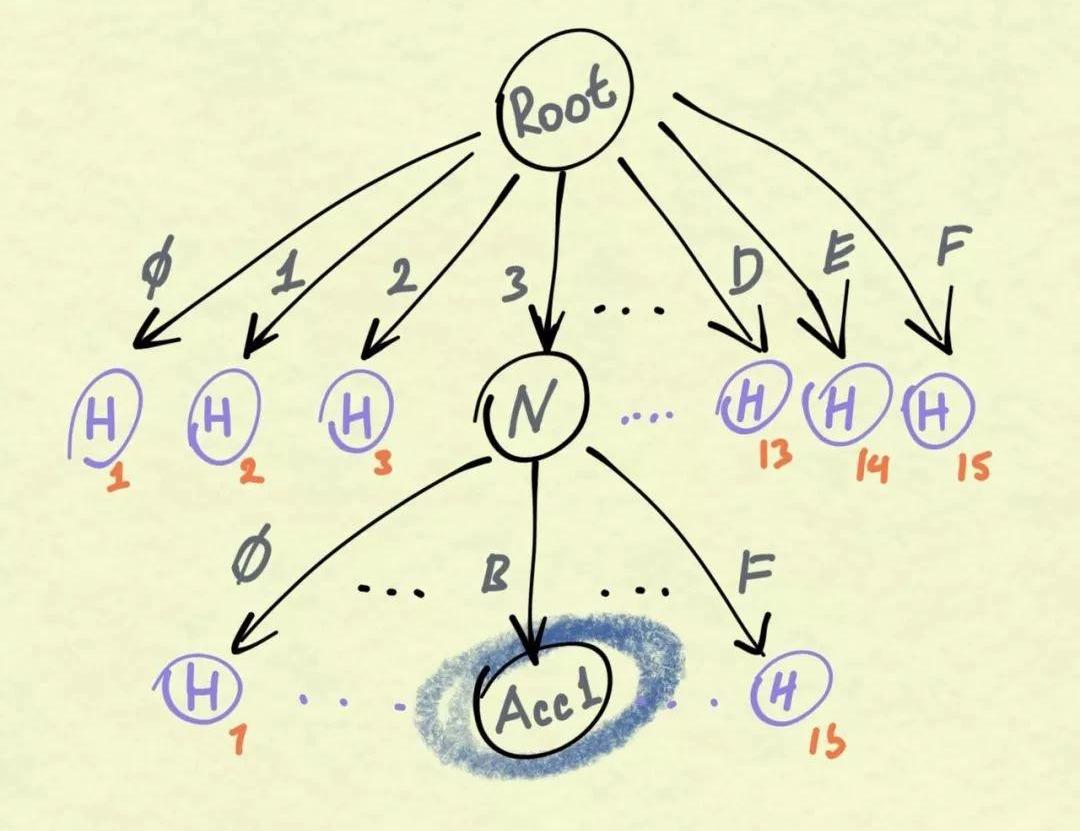 Root
Ø 1 2 3 .... D E F
H H H N .... H H H
1 2 3 13 14 15
Ø ... B ... F
H ... Acc1 .. H
1 15